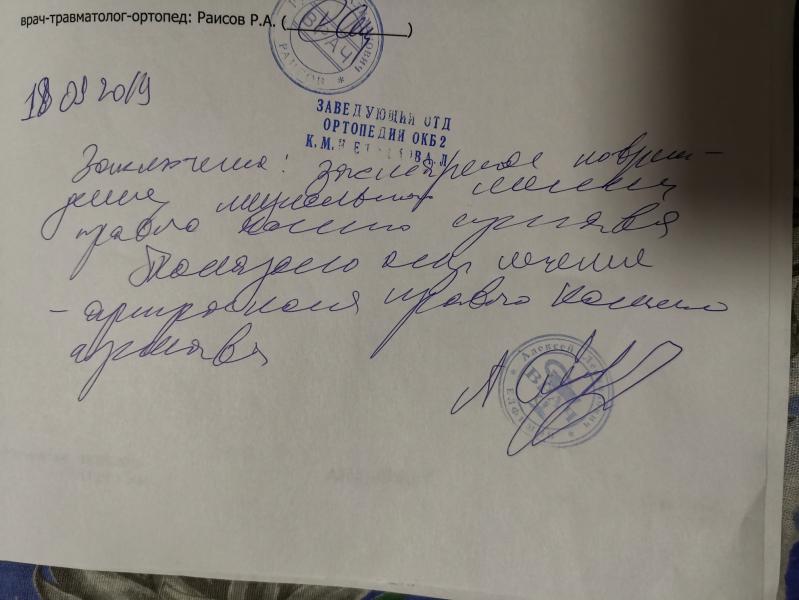 врач-травматолог-ортопед: Раисов Р.А. (            )
ВРАЧ
РАИСОВ
18 09 2019
ЗАВЕДУЮЩИЙ ОТД
ОРТОПЕДИЯ ОКБ2
К.М.Н
Заключение: застарелое повреж-
дение медиального мениска
правого коленного сустава
Показано опер лечение
- артроскопия правого коленного
сустава
Алексей
ВРАЧ